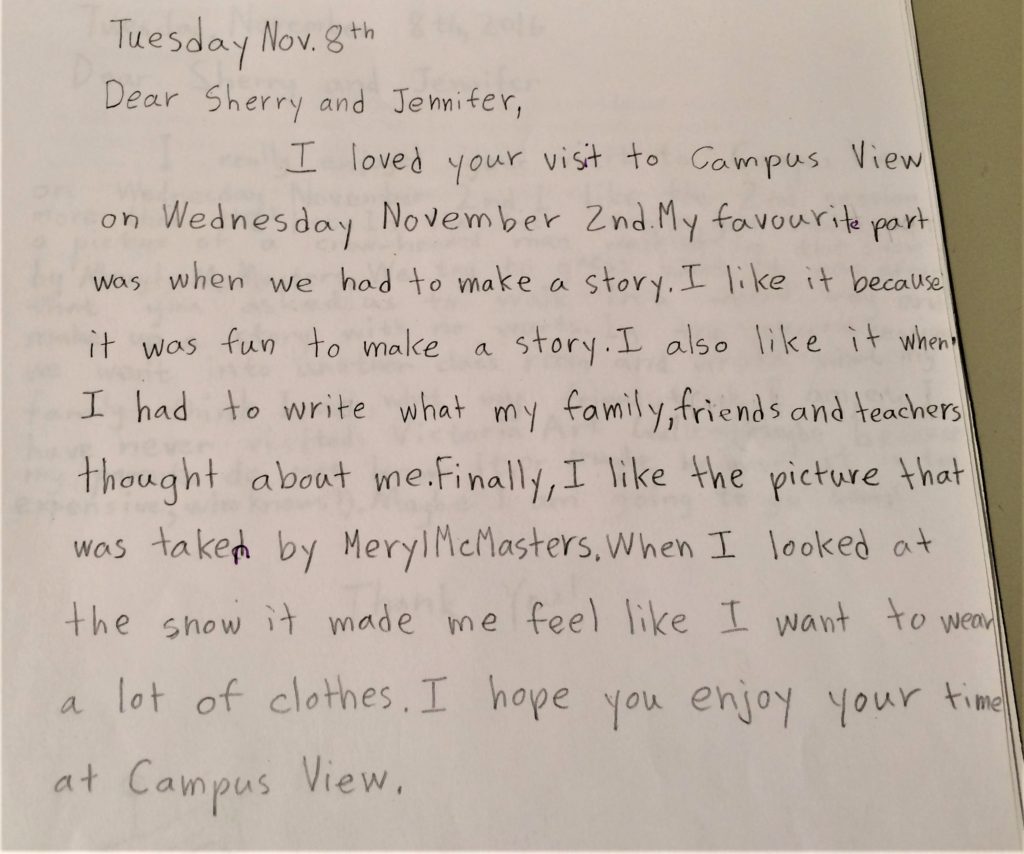 Tuesday Nov. 8th
Dear Sherry and Jennifer,
I loved your visit to Campus View
on Wednesday November 2nd. My favourite part
was when we had to make a story. I like it because
it was fun to make a story. I also like it when
I had to write what my family, friends and teachers
thought about me. Finally, I like the picture that
was taken by Meryl McMasters. When I looked at
the snow it made me feel like I want to wear
a lot of clothes. I hope you enjoy your time
at Campus View.